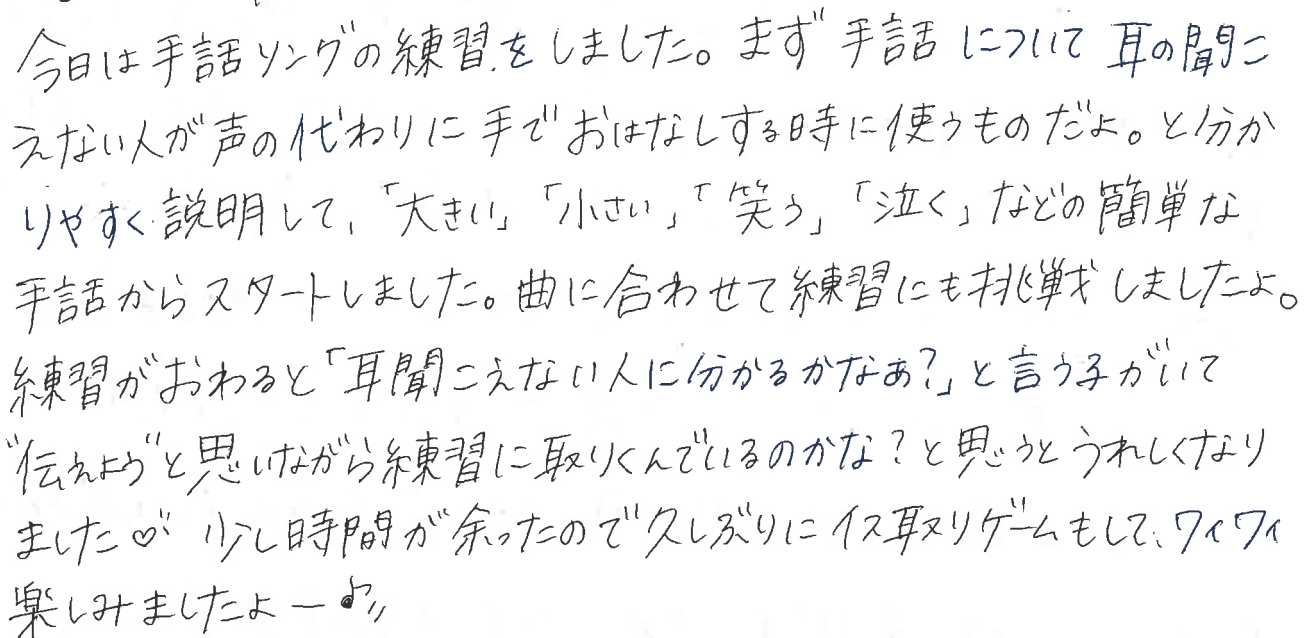 今日は手話ソングの練習をしました。まず手話について耳の聞こ
えない人が声の代わりに手でおはなしする時に使うものだよ。と分か
りやすく説明して、「大きい」「小さい」「笑う」「泣く」などの簡単な
手話からスタートしました。曲に合わせて練習にも挑戦しましたよ。
練習がおわると「耳聞こえない人に分かるかなぁ?」と言う子がいて
"伝えよう"と思いながら練習に取りくんでいるのかな?と思うとうれしくなり
ました♡ 少し時間が余ったので久しぶりにイス取りゲームもして、ワイワイ
楽しみましたよー♪